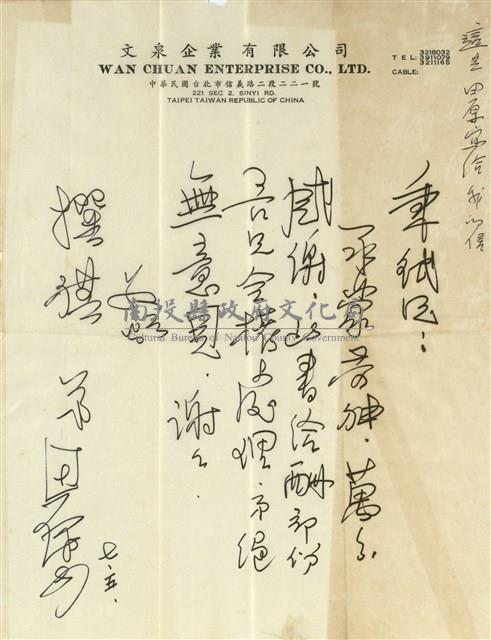 文泉企業有限公司
WAN CHUAN ENTERPRISE CO., LTD.
中華民國台北市信義路二段二二一號
221 SEC 2, SINYI RD.
TAIPEI TAIWAN REPUBLIC OF CHINA
TEL: 3218032
3911079
3211165
CABLE:
這是田原寫給我的信
秉鉞兄：
承蒙勞神．萬分
感謝．此書給酬部份
吾兄全權處理．弟絕
無意見．謝謝．
撰祺
弟田原
七、五、
南投縣政府文化局
Cultural Bureau of Nantou County Government